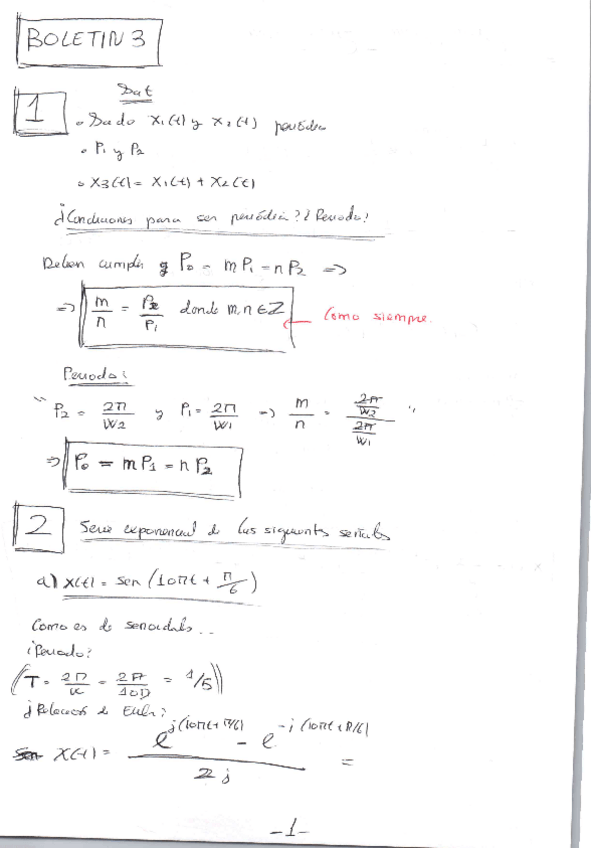 BOLETIN 3
1
Dat
• Dado X₁(t) y X₂(t) periódica
• P₁ y P₂
• X₃(t) = X₁(t) + X₂(t)
¿Condiciones para ser periódica? ¿Periodo?
Deben cumplir q P₀ = m P₁ = n P₂ =>
=> m/n = P₂/P₁ donde m, n ∈ Z ← Como siempre.
Periodo:
" P₂ = 2π/W₂ y P₁ = 2π/W₁ => m/n = (2π/W₂)/(2π/W₁) "
=> P₀ = m P₁ = n P₂
2 Serie exponencial de las siguientes señales
a) X(t) = sen (10πt + π/6)
Como es de senoidales...
¿Periodo?
(T = 2π/ = 2π/10π = 1/5)
¿Relaciones de Euler?
X(t) = (e^{j(10πt + π/6)} - e^{-j(10πt + π/6)})/2j =
-1-